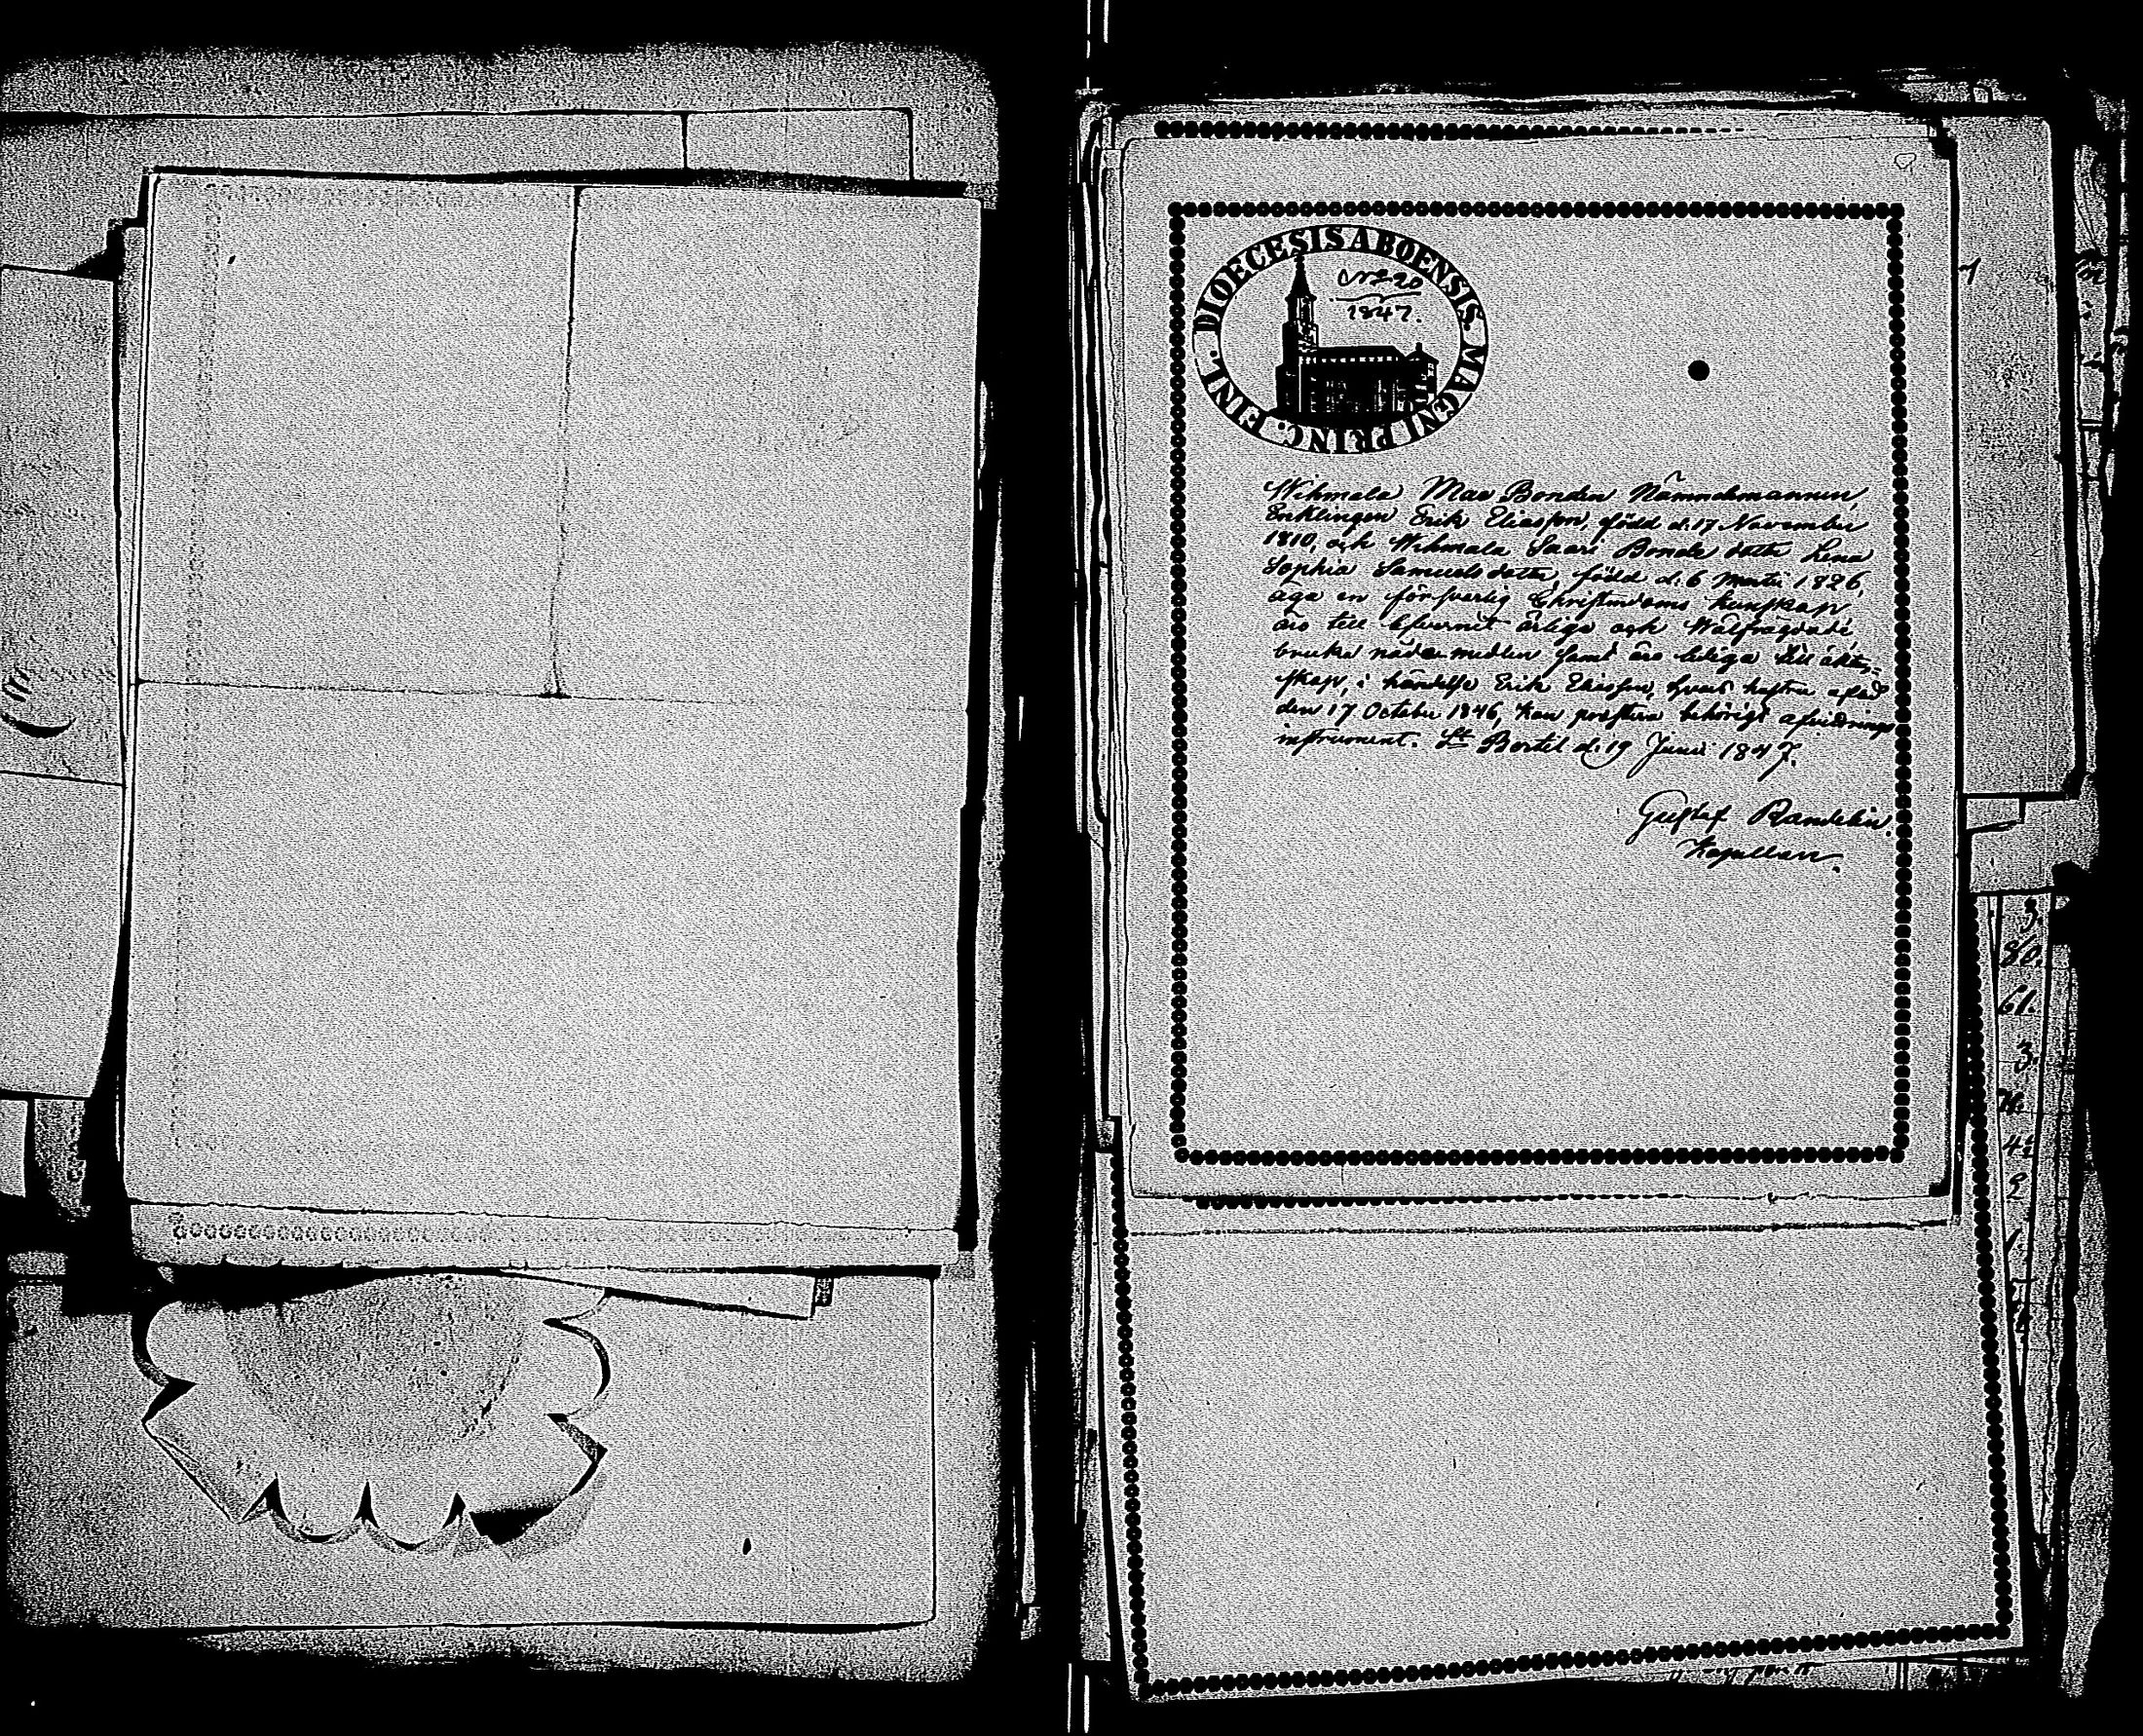 DIOECESIS ABOENSIS. MAGNI PRINC. FINL.
N:o 20
1847.
Wihmala Maa Bonden Nämndemannen,
Enklingen Erik Eliasson, född d. 17 November
1810, och Wihmala Saari Bonde dotter Lena
Sophia Samuelsdotter, född d. 6 Martii 1826,
äga en försvarlig Christendoms kunskap
äro till lefvernet ärlige och Wälfrägdade,
bruka nådemedlen samt äro lediga till äkten-
skap, i händelse Erik Eliasson, hvars hustru afled
den 17 October 1846, kan prestera behörigt afvittrings
instrument. St Bertil d. 19 Junii 1847.
Gustaf Randelin.
Kapellan.
3
80.
61.
3.